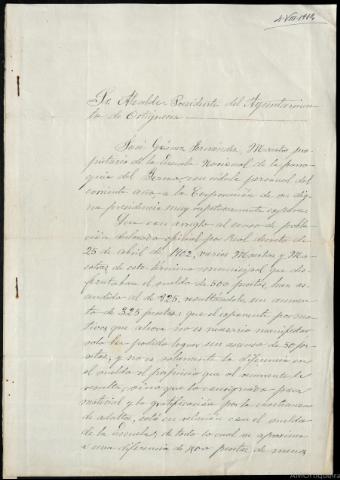 4 VIII 1914
Sr. Alcalde Presidente del Ayuntamien-
to de Ortigueira
José Gómez Fernández, Maestro pro-
pietario de la Escuela Nacional de la parro-
quia del con cédula personal del
corriente año, a la Corporación de su dig-
na presidencia muy respetuosamente expone:
Que con arreglo al censo de pobla-
ción declarado oficial por Real decreto de
25 de abril de 1902, varios Maestros y Ma-
estras de este término municipal que dis-
frutaban el sueldo de 500 pesetas, han as-
cendido al de 825, resultándoles un aumen-
to de 325 pesetas; que el exponente por mo-
tivos que ahora no es necesario manifestar
solo ha podido lograr un ascenso de 50 pe-
setas, y no es solamente la diferencia en
el sueldo el perjuicio que al exponente le
resulta, sino que lo consignado para
material y la gratificación por la enseñanza
de adultos, está en relación con el sueldo
de la Escuela; de todo lo cual se aproxima
a una diferencia de pesetas de menos